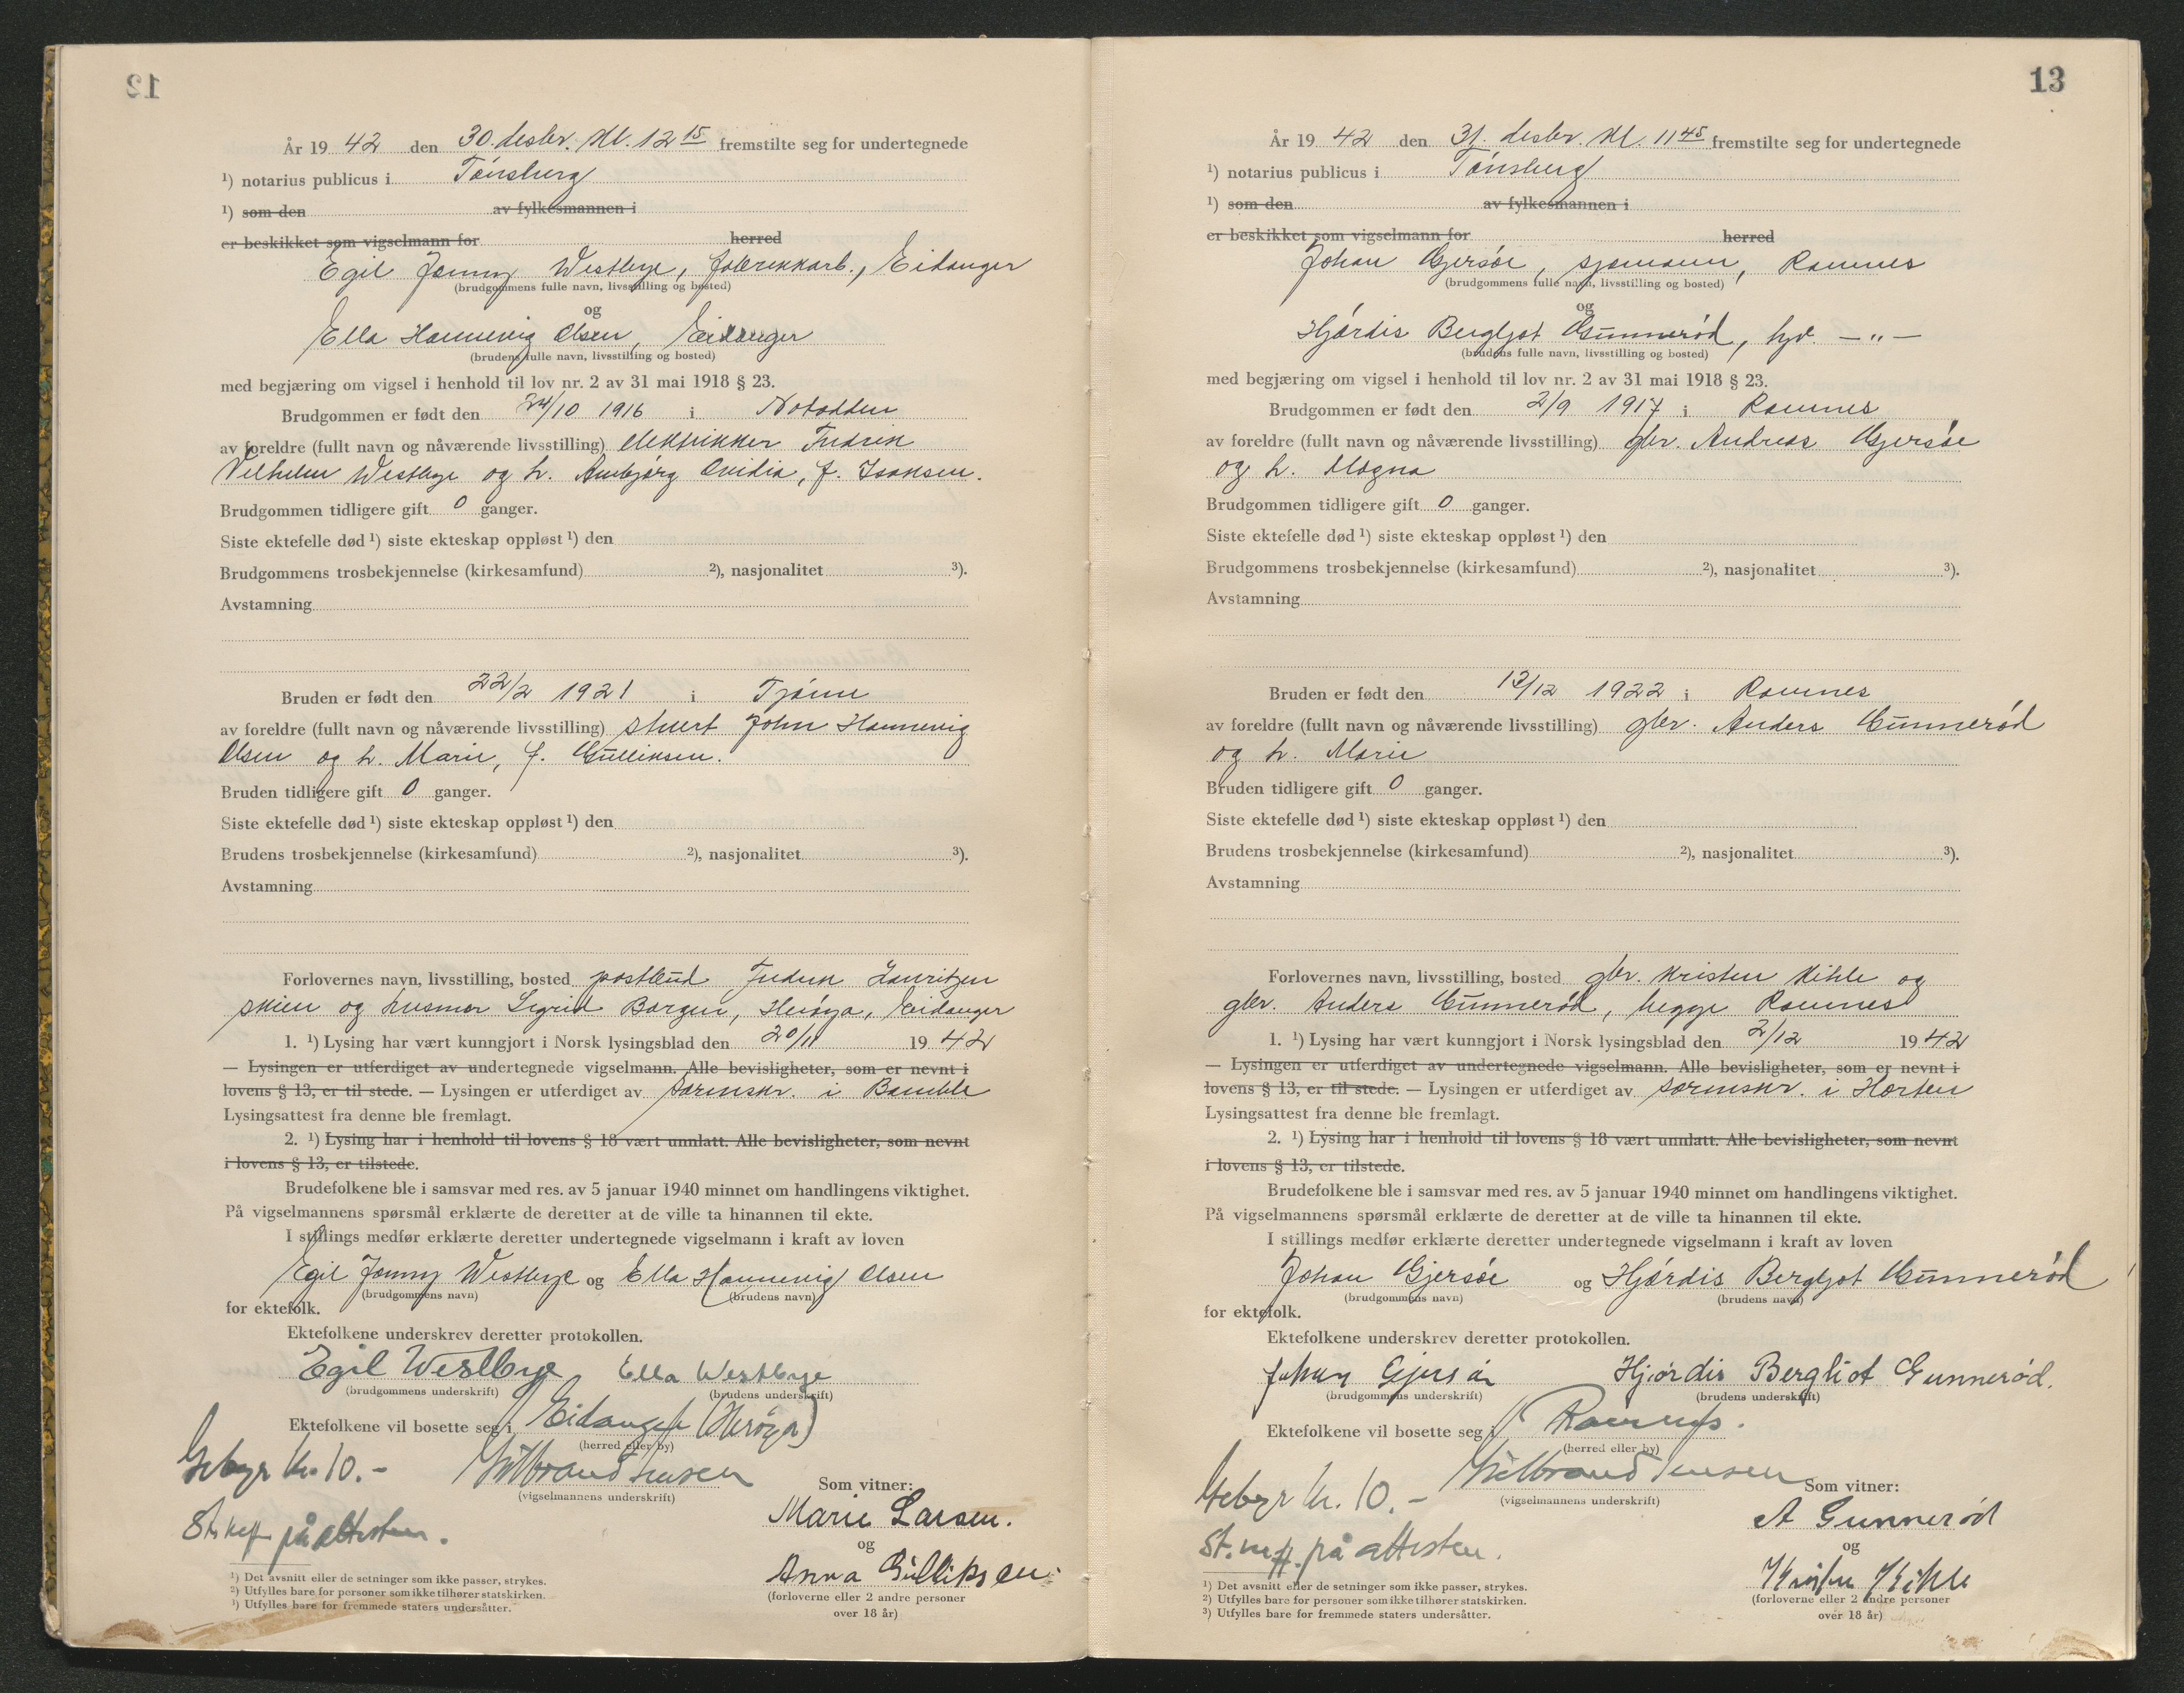 12
År 1942 den 30. desbr. kl. 12 15 fremstilte seg for undertegnede
¹) notarius publicus i Tönsberg
¹) som den av fylkesmannen i
er beskikket som vigselmann for herred
Egil Jonny Westbye, fabrikkarb., Eidanger
(brudgommens fulle navn, livsstilling og bosted)
og
Ella Hannevig Olsen, Eidanger
(brudens fulle navn, livsstilling og bosted)
med begjæring om vigsel i henhold til lov nr. 2 av 31 mai 1918 § 23.
Brudgommen er født den 24/10 1916 i Notodden
av foreldre (fullt navn og nåværende livsstilling) elektrikker Fredrik
Vilhelm Westbye og h. Ovidia, f. Isaksen.
Brudgommen tidligere gift 0 ganger.
Siste ektefelle død ¹) siste ekteskap oppløst ¹) den
Brudgommens trosbekjennelse (kirkesamfund) ²), nasjonalitet ³).
Avstamning
Bruden er født den 22/2 1921 i Tjöme
av foreldre (fullt navn og nåværende livsstilling) stuert John Hannevig
Olsen og h. Marie, f. Gulliksen.
Bruden tidligere gift 0 ganger.
Siste ektefelle død ¹) siste ekteskap oppløst ¹) den
Brudens trosbekjennelse (kirkesamfund) ²), nasjonalitet ³).
Avstamning
Forlovernes navn, livsstilling, bosted postbud Fredrik Lauritzen
Skien og husmor Sigrid Borgen, Heröya, Eidanger
1. ¹) Lysing har vært kunngjort i Norsk lysingsblad den 20/11 1942
— Lysingen er utferdiget av undertegnede vigselmann. Alle bevisligheter, som er nevnt i
lovens § 13, er til stede. — Lysingen er utferdiget av sorenskr. i Bamble
Lysingsattest fra denne ble fremlagt.
2. ¹) Lysing har i henhold til lovens § 18 vært unnlatt. Alle bevisligheter, som nevnt
i lovens § 13, er tilstede.
Brudefolkene ble i samsvar med res. av 5 januar 1940 minnet om handlingens viktighet.
På vigselmannens spørsmål erklærte de deretter at de ville ta hinannen til ekte.
I stillings medfør erklærte deretter undertegnede vigselmann i kraft av loven
Egil Jonny Westbye og Ella Hannevig Olsen
(brudgommens navn) (brudens navn)
for ektefolk.
Ektefolkene underskrev deretter protokollen.
Egil Westbye Ella Westbye
(brudgommens underskrift) (brudens underskrift)
Ektefolkene vil bosette seg i Eidanger (Herøya)
(herred eller by)
Gebyr kr. 10.-
(vigselmannens underskrift)
Som vitner:
Marie Larsen.
på attesten.
og
Anna Gulliksen.
(forloverne eller 2 andre personer
over 18 år)
¹) Det avsnitt eller de setninger som ikke passer, strykes.
²) Utfylles bare for personer som ikke tilhører statskirken.
³) Utfylles bare for fremmede staters undersåtter.
13
År 1942 den 31. desbr. kl. 11 45 fremstilte seg for undertegnede
¹) notarius publicus i Tönsberg
¹) som den av fylkesmannen i
er beskikket som vigselmann for herred
Johan Gjersöe, sjømann, Ramnes
(brudgommens fulle navn, livsstilling og bosted)
og
Hjördis Bergljot Gunneröd, hjv. — " —
(brudens fulle navn, livsstilling og bosted)
med begjæring om vigsel i henhold til lov nr. 2 av 31 mai 1918 § 23.
Brudgommen er født den 2/9 1917 i Ramnes
av foreldre (fullt navn og nåværende livsstilling) gbr. Andreas Gjersöe
og h. Magna
Brudgommen tidligere gift 0 ganger.
Siste ektefelle død ¹) siste ekteskap oppløst ¹) den
Brudgommens trosbekjennelse (kirkesamfund) ²), nasjonalitet ³).
Avstamning
Bruden er født den 12/12 1922 i Ramnes
av foreldre (fullt navn og nåværende livsstilling) gbr. Anders Gunneröd
og h. Marie
Bruden tidligere gift 0 ganger.
Siste ektefelle død ¹) siste ekteskap oppløst ¹) den
Brudens trosbekjennelse (kirkesamfund) ²), nasjonalitet ³).
Avstamning
Forlovernes navn, livsstilling, bosted gbr. Kristen Kihle og
gbr. Anders Gunneröd, begge Ramnes
1. ¹) Lysing har vært kunngjort i Norsk lysingsblad den 2/12 1942
— Lysingen er utferdiget av undertegnede vigselmann. Alle bevisligheter, som er nevnt i
lovens § 13, er til stede. — Lysingen er utferdiget av sorenskr. i Horten
Lysingsattest fra denne ble fremlagt.
2. ¹) Lysing har i henhold til lovens § 18 vært unnlatt. Alle bevisligheter, som nevnt
i lovens § 13, er tilstede.
Brudefolkene ble i samsvar med res. av 5 januar 1940 minnet om handlingens viktighet.
På vigselmannens spørsmål erklærte de deretter at de ville ta hinannen til ekte.
I stillings medfør erklærte deretter undertegnede vigselmann i kraft av loven
Johan Gjersöe og Hjördis Bergljot Gunneröd
(brudgommens navn) (brudens navn)
for ektefolk.
Ektefolkene underskrev deretter protokollen.
Johan Gjersöe Hjördis Bergliot Gunneröd.
(brudgommens underskrift) (brudens underskrift)
Ektefolkene vil bosette seg i Ramnes.
(herred eller by)
Gebyr kr. 10.-
(vigselmannens underskrift)
Som vitner:
A Gunneröd
på attesten.
og
Kristen Kihle
(forloverne eller 2 andre personer
over 18 år)
¹) Det avsnitt eller de setninger som ikke passer, strykes.
²) Utfylles bare for personer som ikke tilhører statskirken.
³) Utfylles bare for fremmede staters undersåtter.